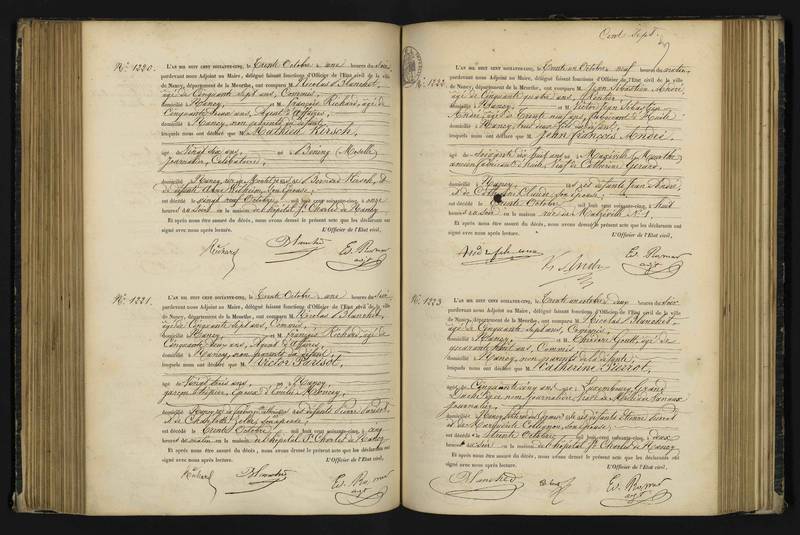 Cent Sept
N.° 1220.
L'AN MIL HUIT CENT SOIXANTE-CINQ, le Trente Octobre à une heure du soir
pardevant nous Adjoint au Maire, délégué faisant fonctions d'Officier de l'État civil de la ville
de Nancy, département de la Meurthe, ont comparu M. Nicolas Blanchet,
âgé de Cinquante sept ans, Commis,
domicilié à Nancy, et M. François Richard, âgé de
Cinquante neuf ans, Agent d'affaires,
domicilié à Nancy, non parents du défunt
lesquels nous ont déclaré que M. Mathieu Kirsch,
âgé de Vingt six ans, né à Bening (Moselle)
journalier, Célibataire,
domicilié à Nancy, fils de Bernard Kirsch, et
de défunte Anne son épouse;
est décédé le vingt neuf Octobre, mil huit cent soixante-cinq, à onze
heures en la maison de l'hôpital St Charles de Nancy
Et après nous être assuré du décès, nous avons dressé le présent acte que les déclarants ont
signé avec nous après lecture. L'Officier de l'État civil,
Richard Blanchet
N.° 1221.
L'AN MIL HUIT CENT SOIXANTE-CINQ, le Trente Octobre à une heure du soir
pardevant nous Adjoint au Maire, délégué faisant fonctions d'Officier de l'État civil de la ville
de Nancy, département de la Meurthe, ont comparu M. Nicolas Blanchet,
âgé de Cinquante sept ans, Commis,
domicilié à Nancy, et M. François Richard, âgé de
Cinquante neuf ans, Agent d'affaires,
domicilié à Nancy, non parents du défunt
lesquels nous ont déclaré que M. Victor Parisot,
âgé de Vingt trois ans, né à Nancy,
garçon époux d'Emilie
domicilié à Nancy, fils de défunts Pierre Parisot,
et de Charlotte son épouse
est décédé le Trente Octobre, mil huit cent soixante-cinq, à cinq
heures du matin en la maison de l'hôpital St Charles de Nancy
Et après nous être assuré du décès, nous avons dressé le présent acte que les déclarants ont
signé avec nous après lecture. L'Officier de l'État civil,
Richard Blanchet
N.° 1222.
L'AN MIL HUIT CENT SOIXANTE-CINQ, le Trente un Octobre à neuf heures du matin
pardevant nous Adjoint au Maire, délégué faisant fonctions d'Officier de l'État civil de la ville
de Nancy, département de la Meurthe, ont comparu M. Jean Sébastien André,
âgé de Cinquante quatre ans, Rentier,
domicilié à Nancy, et M. Victor Jean Sébastien
André, âgé de Trente neuf ans,
domicilié à Nancy, tous deux fils du défunt,
lesquels nous ont déclaré que M. Jean François André,
âgé de Soixante dix huit ans, né à Maxéville (Meurthe)
ancien fabricant d'huile, Veuf de Catherine Gérard,
domicilié à Nancy, fils de défunts Jean André,
et de Catherine Claude son épouse,
est décédé le Trente Octobre, mil huit cent soixante-cinq, à huit
heures du soir en la maison rue de Malzéville N.° 1,
Et après nous être assuré du décès, nous avons dressé le présent acte que les déclarants ont
signé avec nous après lecture. L'Officier de l'État civil,
V. André
N.° 1223
L'AN MIL HUIT CENT SOIXANTE-CINQ, le Trente un octobre à deux heures du soir
pardevant nous Adjoint au Maire, délégué faisant fonctions d'Officier de l'État civil de la ville
de Nancy, département de la Meurthe, ont comparu M. Nicolas Blanchet,
âgé de Cinquante sept ans, Commis,
domicilié à Nancy, et M. âgé de
ans, Commis
domicilié à Nancy, non parents de la défunte;
lesquels nous ont déclaré que M. Catherine Pierrot,
âgée de Cinquante cinq ans, née à Luxembourg, Grand
Duché
journalier
domiciliée à Nancy, fille de défunts Etienne Pierrot
et de Marguerite Collignon son épouse;
est décédée le Trente Octobre, mil huit cent soixante-cinq, à deux
heures du soir en la maison de l'hôpital St Charles de Nancy
Et après nous être assuré du décès, nous avons dressé le présent acte que les déclarants ont
signé avec nous après lecture. L'Officier de l'État civil,
Blanchet